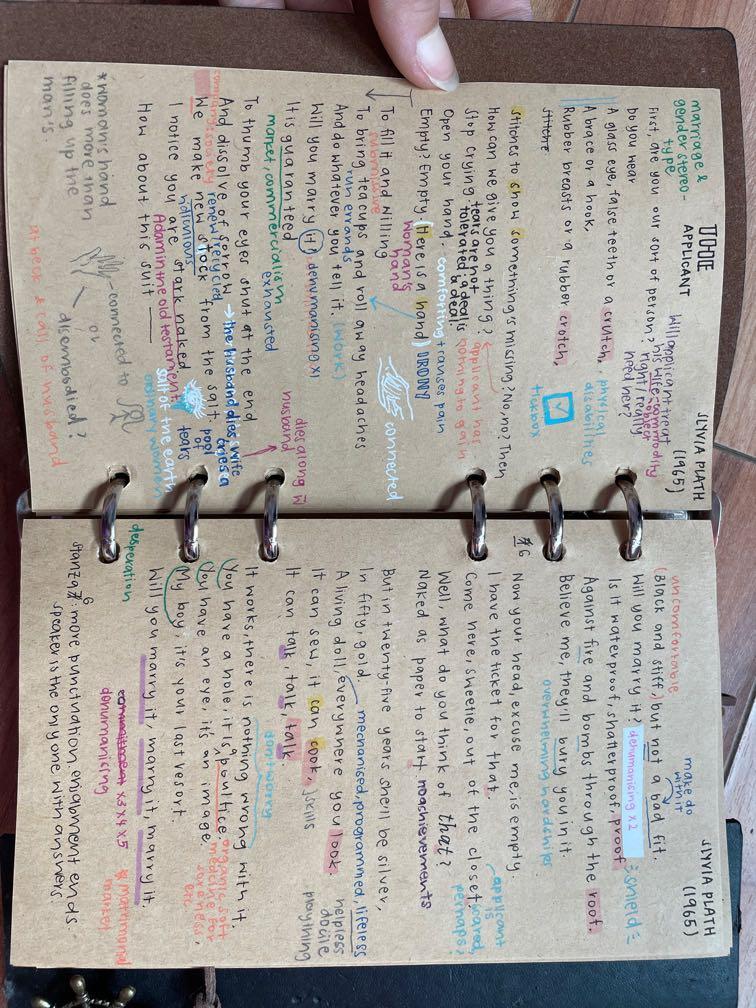 marriage & gender stereo-type
THE
APPLICANT
SLYVIA PLATH
(1965)
Will applicant treat
his wife = commodity
right / really
need her?
First, are you our sort of person?
Do you wear
A glass eye, false teeth or a crutch,
A brace or a hook,
Rubber breasts or a rubber crotch,
physical
disabilities
tickbox
Stitches to show something's missing? No, no? Then
How can we give you a thing?
tears are not
tolerated
a deal is
a deal!
applicant has
nothing to gain
Stop crying
Open your hand.
comforting
causes pain
Empty? Empty. Here is a hand
IRONY
woman's
hand
To fill it and willing
submissive
connected
To bring teacups and roll away headaches
run errands
And do whatever you tell it.
(work)
Will you marry it?
dehumanising x1
It is guaranteed
market, commercialism
exhausted
To thumb your eyes shut at the end
dies along w
husband
And dissolve of sorrow.
→ the husband dies, wife
cries a
pool
of
tears
company: society
renew, recycled
We make new stock from the salt.
ridiculous
salt of the earth
ordinary women
I notice you are stark naked.
Adam in the old testament
How about this suit—
*woman's hand
does more than
filling up the
man's.
connected to
or
disembodied?
at beck & call of husband
SLYVIA PLATH
(1965)
uncomfortable
make do
with it
Black and stiff, but not a bad fit.
Will you marry it?
dehumanising x2
shield
Is it waterproof, shatterproof, proof
Against fire and bombs through the roof.
Believe me, they'll bury you in it.
overwhelming hardships
#6
Now your head, excuse me, is empty
I have the ticket for that
applicant
is
scared,
perhaps?
Come here, sweetie, out of the closet.
Well, what do you think of that?
Naked as paper to start
no achievements
But in twenty-five years she'll be silver,
In fifty, gold.
mechanised, programmed, lifeless
A living doll, everywhere you look.
helpless
docile
plaything
It can sew, it can cook,
skills
It can talk, talk, talk.
don't worry
It works, there is nothing wrong with it.
You have a hole, it is a poultice.
organic, soft
medicine for
soreness,
etc.
You have an eye, it's an image.
My boy, it's your last resort.
Will you marry it, marry it, marry it.
desperation
dehumanising
x3 x4 x5
market
stanza 6: more punctuation enjambment ends
speaker is the only one with answers